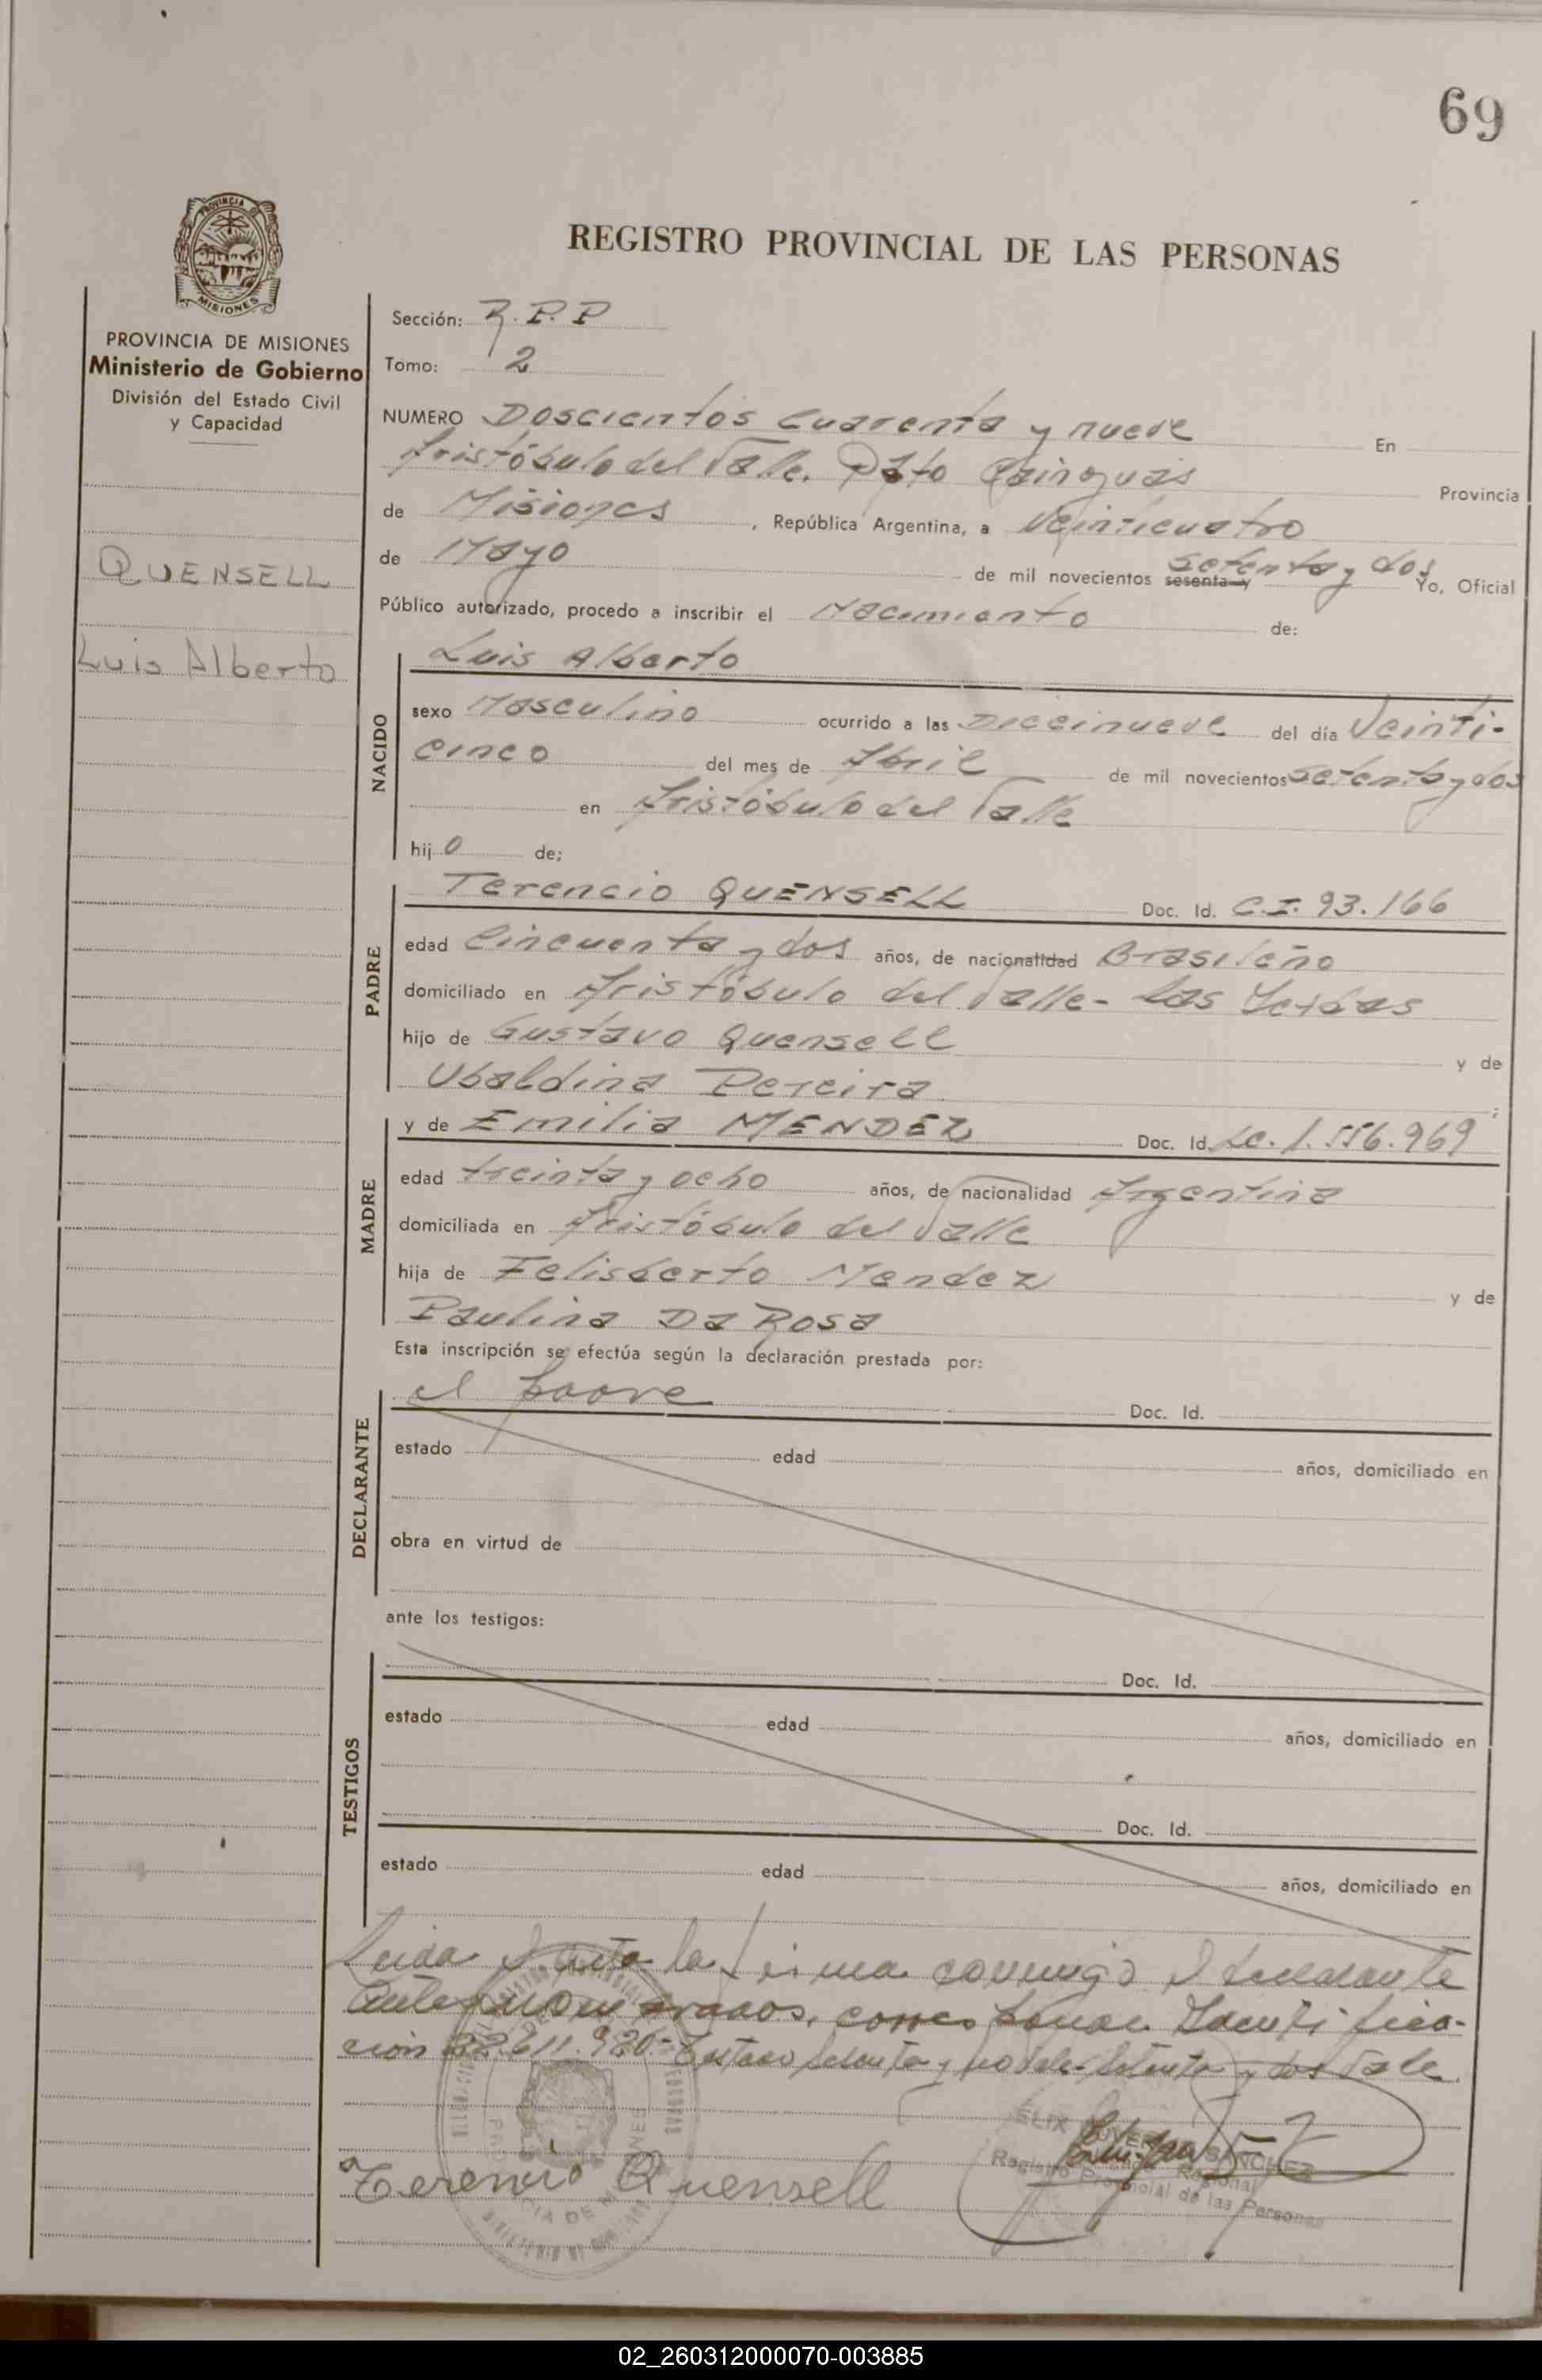 69
PROVINCIA DE MISIONES
Ministerio de Gobierno
División del Estado Civil
y Capacidad
QUENSELL
Luis Alberto
REGISTRO PROVINCIAL DE LAS PERSONAS
Sección: R.P.P
Tomo: 2
NUMERO Doscientos cuarenta y nueve En
Aristóbulo del Valle. Dpto Cainguás Provincia
de Misiones, República Argentina, a Veinticuatro
de Mayo de mil novecientos sesenta y setenta y dos Yo, Oficial
Público autorizado, procedo a inscribir el Nacimiento de:
NACIDO
Luis Alberto
sexo Masculino ocurrido a las Diecinueve del día Veinti-
cinco del mes de Abril de mil novecientos setenta y dos
en Aristóbulo del Valle
hijo de;
PADRE
Terencio QUENSELL Doc. Id. C.I. 93.166
edad Cincuenta y dos años, de nacionalidad Brasileño
domiciliado en Aristóbulo del Valle - Las Yerbas
hijo de Gustavo Quensell y de
Ubaldina Pereira;
MADRE
y de Emilia MENDEZ Doc. Id. LC. 1.556.969
edad treinta y ocho años, de nacionalidad Argentina
domiciliada en Aristóbulo del Valle
hija de Felisberto Mendez y de
Paulina Da Rosa
Esta inscripción se efectúa según la declaración prestada por:
DECLARANTE
el padre Doc. Id.
estado edad años, domiciliado en
obra en virtud de
ante los testigos:
TESTIGOS
Doc. Id.
estado edad años, domiciliado en
Doc. Id.
estado edad años, domiciliado en
Leida el acta la firma conmigo el declarante
corresponde Identifica-
ción 22.611.920 - Testado sesenta y no vale - setenta y dos Vale
Terencio Quensell
SANCHEZ
Registro Provincial de las Personas
02_260312000070-003885